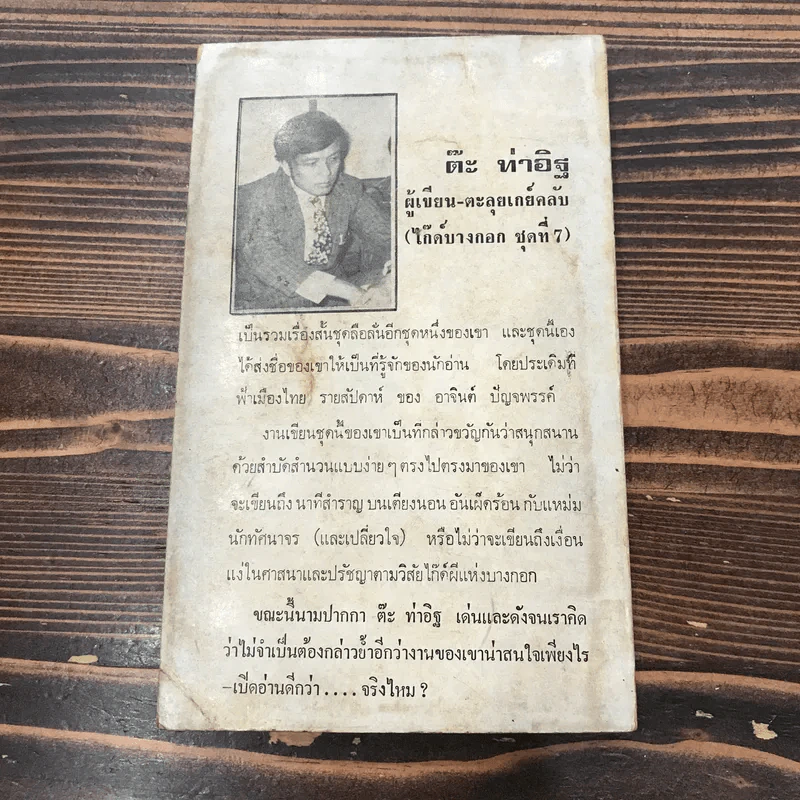 ต๊ะ ท่าอิฐ
ผู้เขียน-ตะลุยเกย์คลับ
(ไก๊ด์บางกอก ชุดที่ 7)
เป็นรวมเรื่องสั้นชุดลือลั่นอีกชุดหนึ่งของเขา และชุดนี้เอง
ได้ส่งชื่อของเขาให้เป็นที่รู้จักของนักอ่าน โดยประเดิมที่
ฟ้าเมืองไทย รายสัปดาห์ ของ อาจินต์ ปัญจพรรค์
งานเขียนชุดนี้ของเขาเป็นที่กล่าวขวัญกันว่าสนุกสนาน
ด้วยสำบัดสำนวนแบบง่าย ๆ ตรงไปตรงมาของเขา ไม่ว่า
จะเขียนถึง นาทีสำราญ บนเตียงนอน อันเผ็ดร้อน กับแหม่ม
นักทัศนาจร (และเปลี่ยวใจ) หรือไม่ว่าจะเขียนถึงเงื่อน
แง่ในศาสนาและปรัชญาตามวิสัยไก๊ด์ผีแห่งบางกอก
ขณะนี้นามปากกา ต๊ะ ท่าอิฐ เด่นและดังจนเราคิด
ว่าไม่จำเป็นต้องกล่าวย้ำอีกว่างานของเขาน่าสนใจเพียงไร
-เปิดอ่านดีกว่า . . . . จริงไหม ?